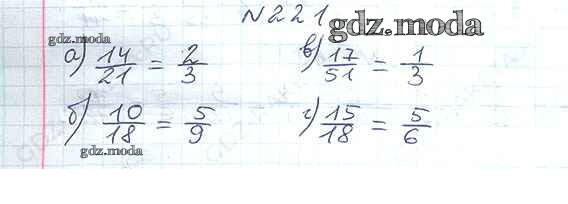 N221
gdz.moda
gdz.moda
а) 14/21 = 2/3
в) 17/51 = 1/3
б) 10/18 = 5/9
г) 15/18 = 5/6
gdz.moda
gdz.moda